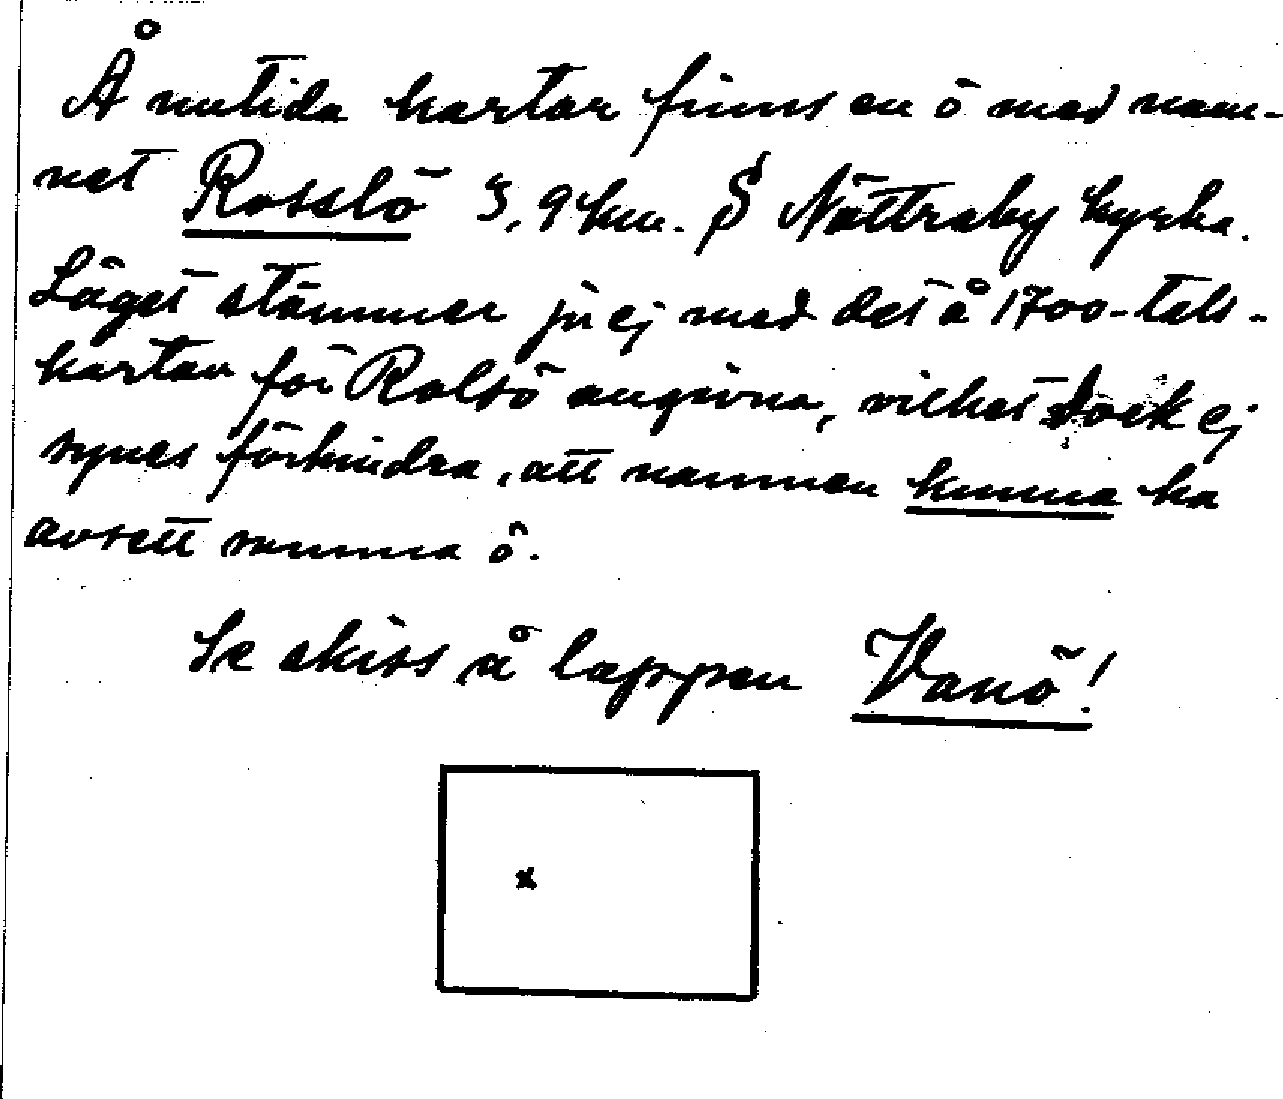 Å nutida kartor finns en ö med nam-
net Rosslö 3,9 km. S Nättraby kyrka.
Läget stämmer ju ej med det å 1700-tals-
kartan för Ralsö angivna, vilket dock ej
synes förhindra, att namnen kunna ha
avsett samma ö.
Se skiss å lappen Vanö!
x